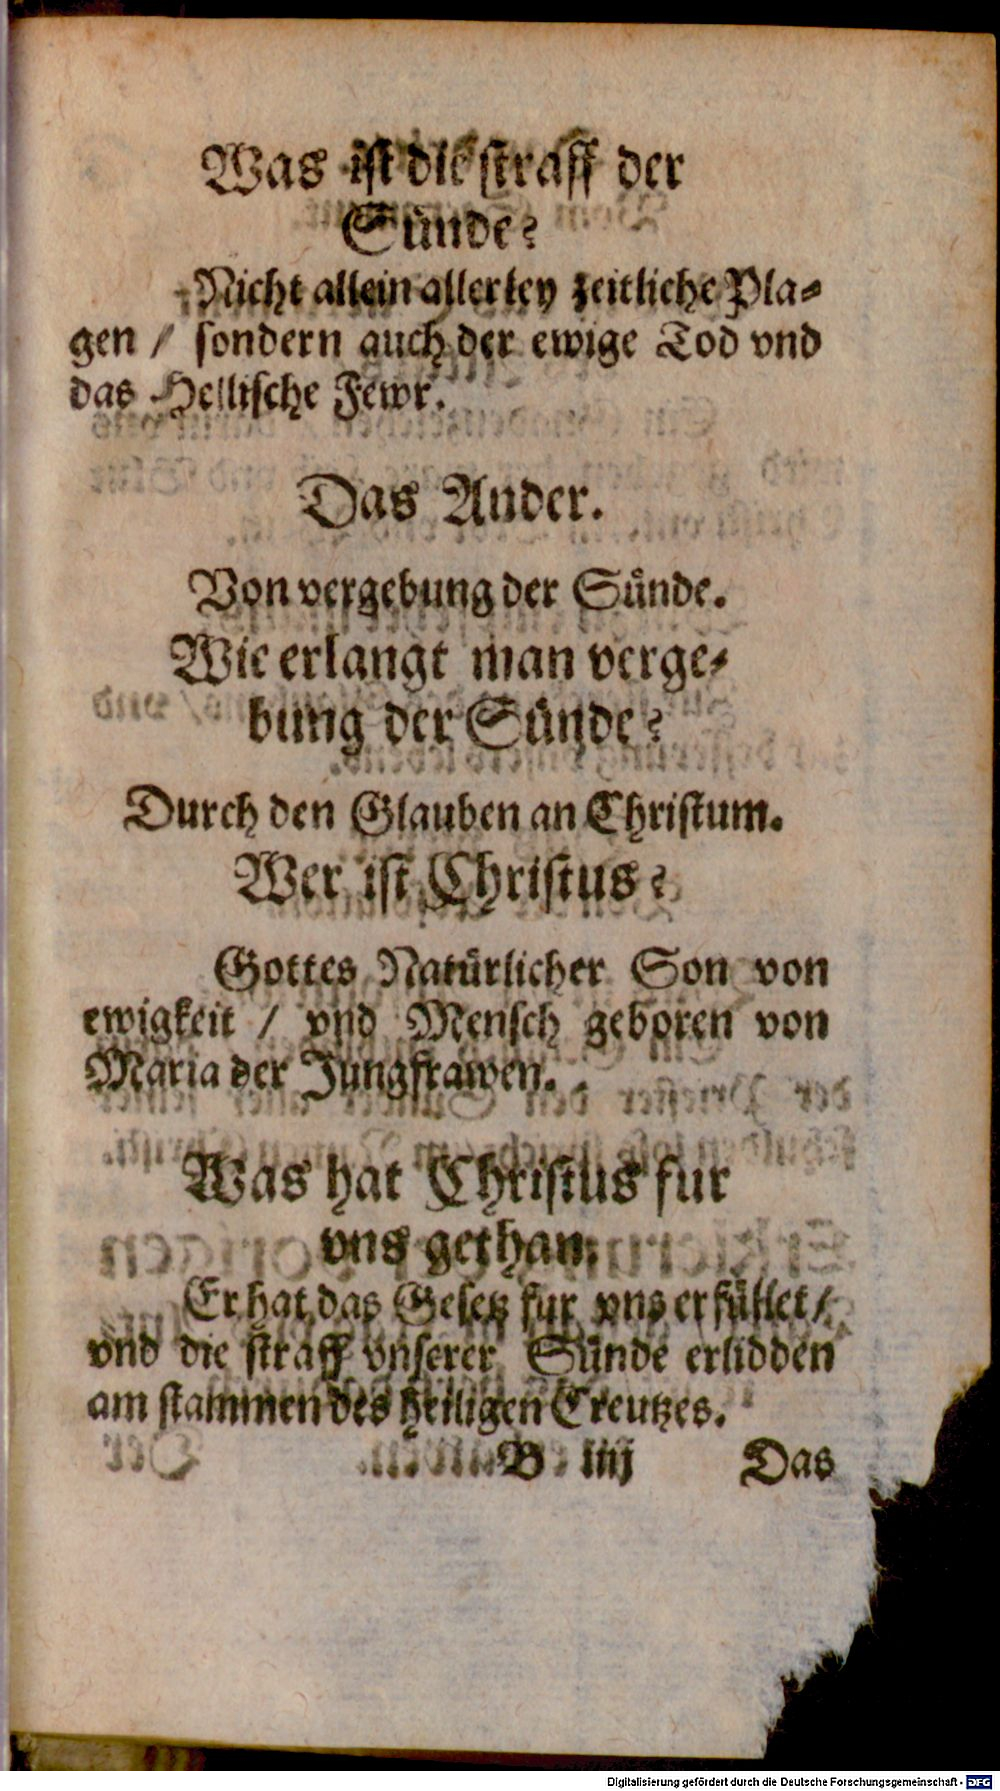 Was ist die straff der
Sünde?
Nicht allein allerley zeitliche Pla-
gen / sondern auch der ewige Tod vnd
das Hellische Fewr.
Das Ander.
Von vergebung der Sünde.
Wie erlangt man verge-
bung der Sünde?
Durch den Glauben an Christum.
Wer ist Christus?
Gottes Natürlicher Son von
ewigkeit / vnd Mensch geboren von
Maria der Jungfrawen.
Was hat Christus fur
vns gethan.
Er hat das Gesetz fur vns erfüllet /
vnd die straff vnserer Sünde erlidden
am stammen des heiligen Creutzes.
B iiij Das
Digitalisierung gefördert durch die Deutsche Forschungsgemeinschaft - DFG